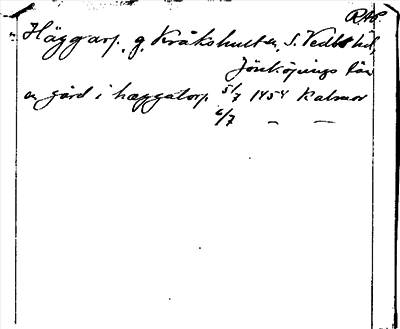 RAP.
Häggarp, g. Kråkshult sn, S. Vedbo hd,
Jönköpings län
en gård i hæggatorp 5/7 1454 Kalmar
6/7 — —